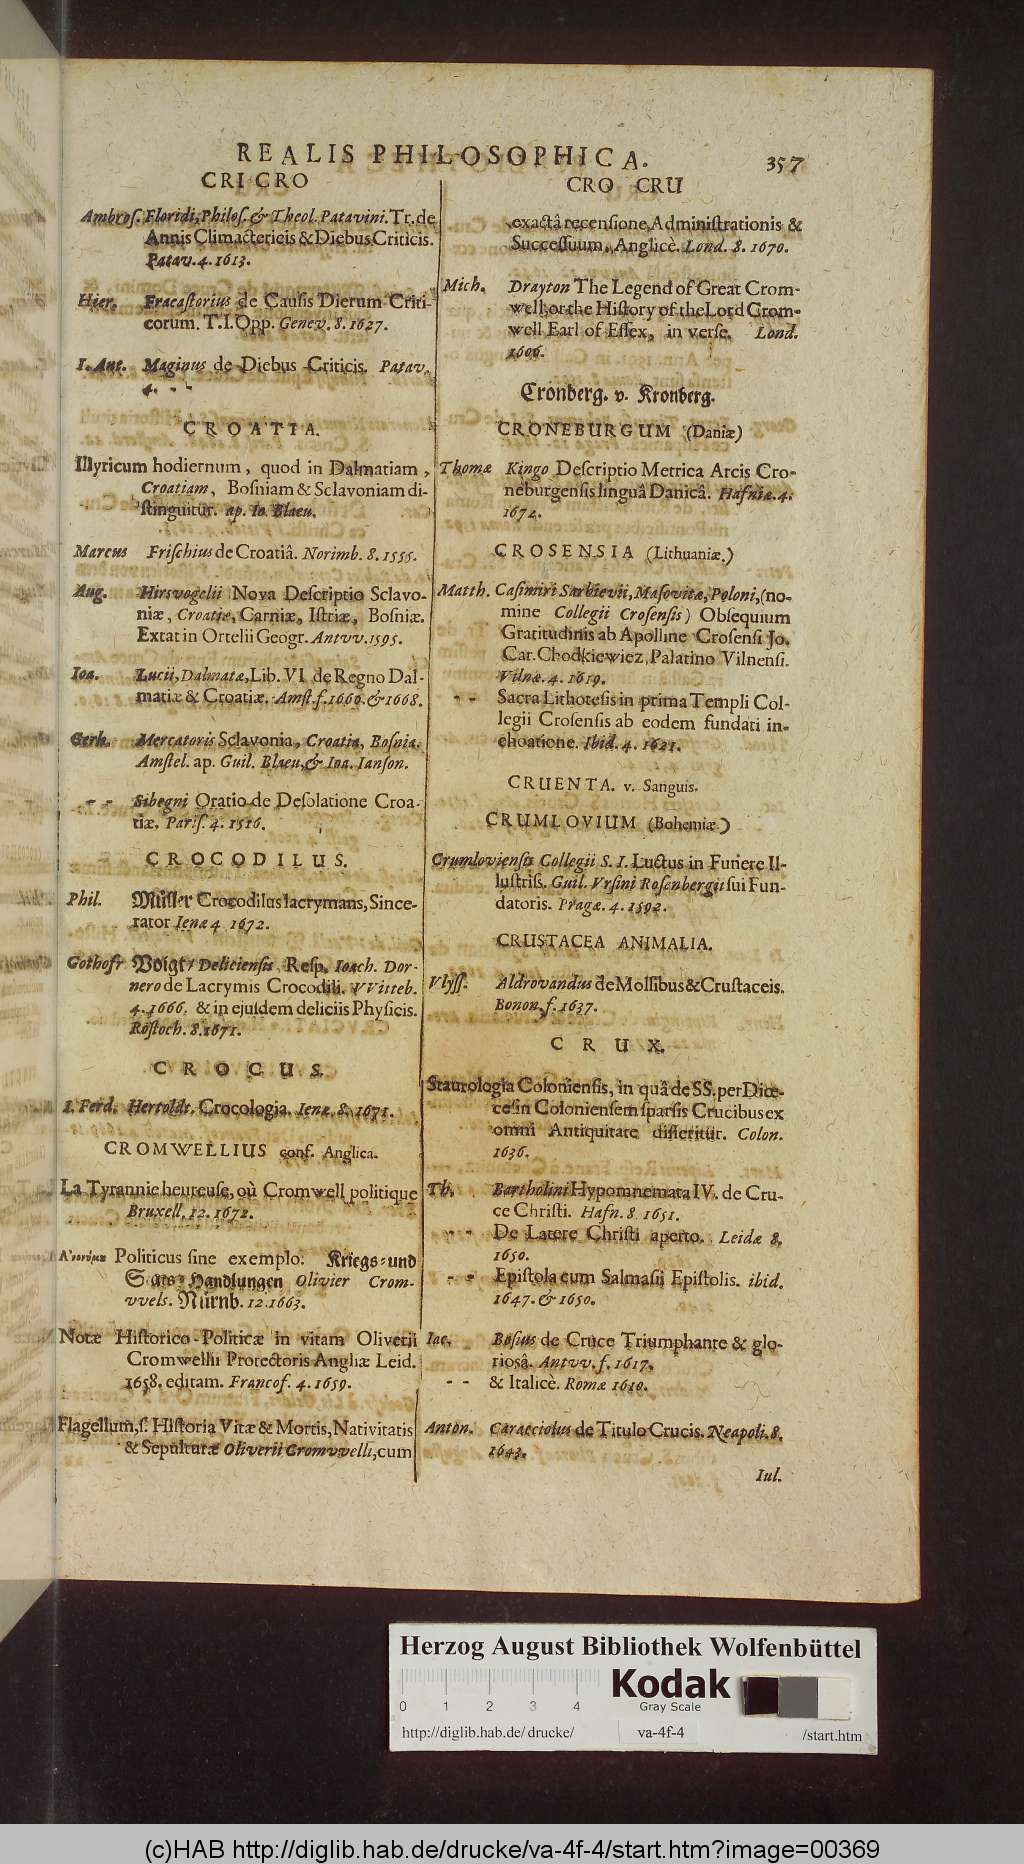 REALIS PHILOSOPHICA. 357
CRI CRO
Ambros. Floridi, Philos. & Theol. Patavini. Tr. de
Annis Climactericis & Diebus Criticis.
Patav. 4. 1613.
Hier. Fracastorius de Causis Dierum Criti-
corum. T. I. Opp. Genev. 8. 1627.
I. Ant. Maginus de Diebus Criticis. Patav.
4. - -
CROATIA.
Illyricum hodiernum, quod in Dalmatiam,
Croatiam, Bosniam & Sclavoniam di-
stinguitur. ap. Io. Blaeu.
Marcus Frischius de Croatiâ. Norimb. 8. 1555.
Aug. Hirsvogelii Nova Descriptio Sclavo-
niæ, Croatiæ, Carniæ, Istriæ, Bosniæ.
Extat in Ortelii Geogr. Antvv. 1595.
Ioa. Lucii, Dalmatæ, Lib. VI de Regno Dal-
matiæ & Croatiæ. Amst. f. 1666. & 1668.
Gerh. Mercatoris Sclavonia, Croatia, Bosnia.
Amstel. ap. Guil. Blaeu, & Ioa. Ianson.
- - Sibegni Oratio de Desolatione Croa-
tiæ. Paris. 4. 1516.
CROCODILUS.
Phil. Müller Crocodilus lacrymans, Since-
rator Ienæ 4 1672.
Gothofr Voigt / Deliciensis, Resp. Ioach. Dor-
nero de Lacrymis Crocodili. VVitteb.
4. 1666. & in ejusdem deliciis Physicis.
Rostoch. 8. 1671.
CROCUS.
I. Ferd. Hertoldt. Crocologia. Ienæ. 8. 1671.
CROMWELLIUS conf. Anglica.
La Tyrannie heureuse, où Cromwell politique
Bruxell. 12. 1672.
Politicus sine exemplo. Kriegs- und
Stats-Handlungen Olivier Crom-
vvels. Nürnb. 12. 1663.
Notæ Historico-Politicæ in vitam Oliverii
Cromwellii Protectoris Angliæ Leid.
1658. editam. Francof. 4. 1659.
Flagellum, s. Historia Vitæ & Mortis, Nativitatis
& Sepulturæ Oliverii Cromvvelli, cum
CRO CRU
exactâ recensione, Administrationis &
Successuum, Anglicè. Lond. 8. 1670.
Mich. Drayton The Legend of Great Crom-
well, or the History of the Lord Crom-
well Earl of Essex, in verse. Lond.
1606.
Cronberg. v. Kronberg.
CRONEBURGUM (Daniæ)
Thomæ Kingo Descriptio Metrica Arcis Cro-
neburgensis linguâ Danicâ. Hafniæ. 4.
1672.
CROSENSIA (Lithuaniæ.)
Matth. Casimiri Sarbievii, Masovitæ, Poloni, (no-
mine Collegii Crosensis) Obsequium
Gratitudinis ab Apolline Crosensi Jo.
Car. Chodkiewiez, Palatino Vilnensi.
Vilnæ. 4. 1619.
- - Sacra Lithotesis in prima Templi Col-
legii Crosensis ab eodem fundati in-
choatione. Ibid. 4. 1621.
CRUENTA. v. Sanguis.
CRUMLOVIUM (Bohemiæ.)
Crumloviensis Collegii S. I. Luctus in Funere Il-
lustriss. Guil. Vrsini Rosenbergii sui Fun-
datoris. Pragæ. 4. 1592.
CRUSTACEA ANIMALIA.
Vlyss. Aldrovandus de Mollibus & Crustaceis.
Bonon. f. 1637.
CRUX.
Staurologia Coloniensis, in quâ de SS. per Diœ-
cesin Coloniensem sparsis Crucibus ex
omni Antiquitate disseritur. Colon.
1636.
Th. Bartholini Hypomnemata IV. de Cru-
ce Christi. Hafn. 8 1651.
- - De Latere Christi aperto. Leidæ 8.
1650.
- - Epistola cum Salmasii Epistolis. ibid.
1647. & 1650.
Iac. Bosius de Cruce Triumphante & glo-
riosâ. Antvv. f. 1617.
- - & Italicè. Romæ 1610.
Anton. Caracciolus de Titulo Crucis. Neapoli. 8.
1643.
Iul.
Herzog August Bibliothek Wolfenbüttel
0 1 2 3 4
Kodak
Gray Scale
http://diglib.hab.de/drucke/ va-4f-4 /start.htm
(c)HAB http://diglib.hab.de/drucke/va-4f-4/start.htm?image=00369